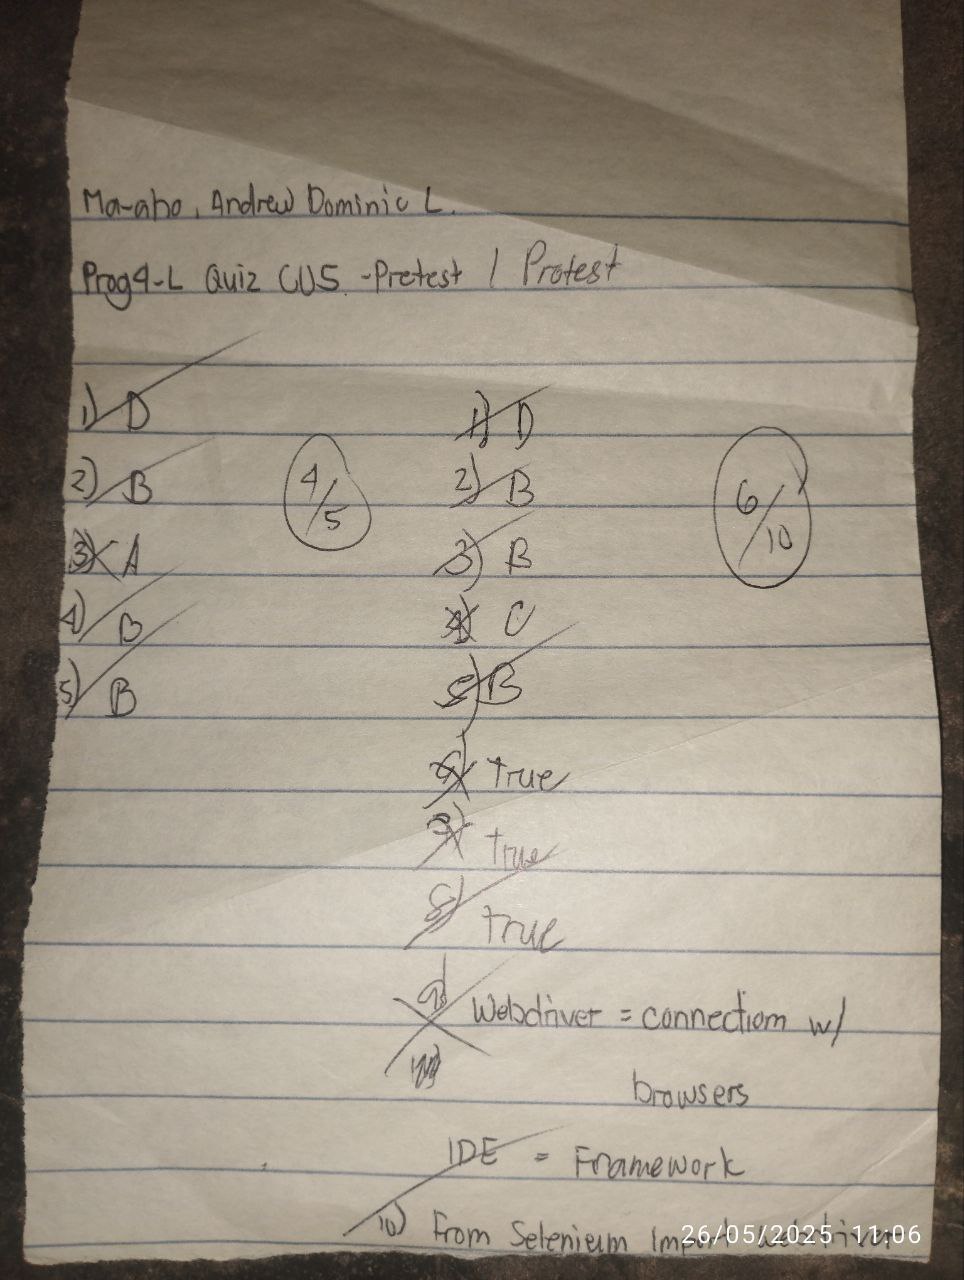 Ma-aho, Andrew Dominic L.
Prog4-L Quiz CU5 -Pretest / Protest
1) D
2) B
3) A
4) B
5) B
4/5
1) D
2) B
3) B
4) C
5) B
6) true
7) true
8) true
9) Webdriver = connection w/
browsers
IDE = Framework
10) From Selenium Import Webdriver
6/10
26/05/2025 11:06